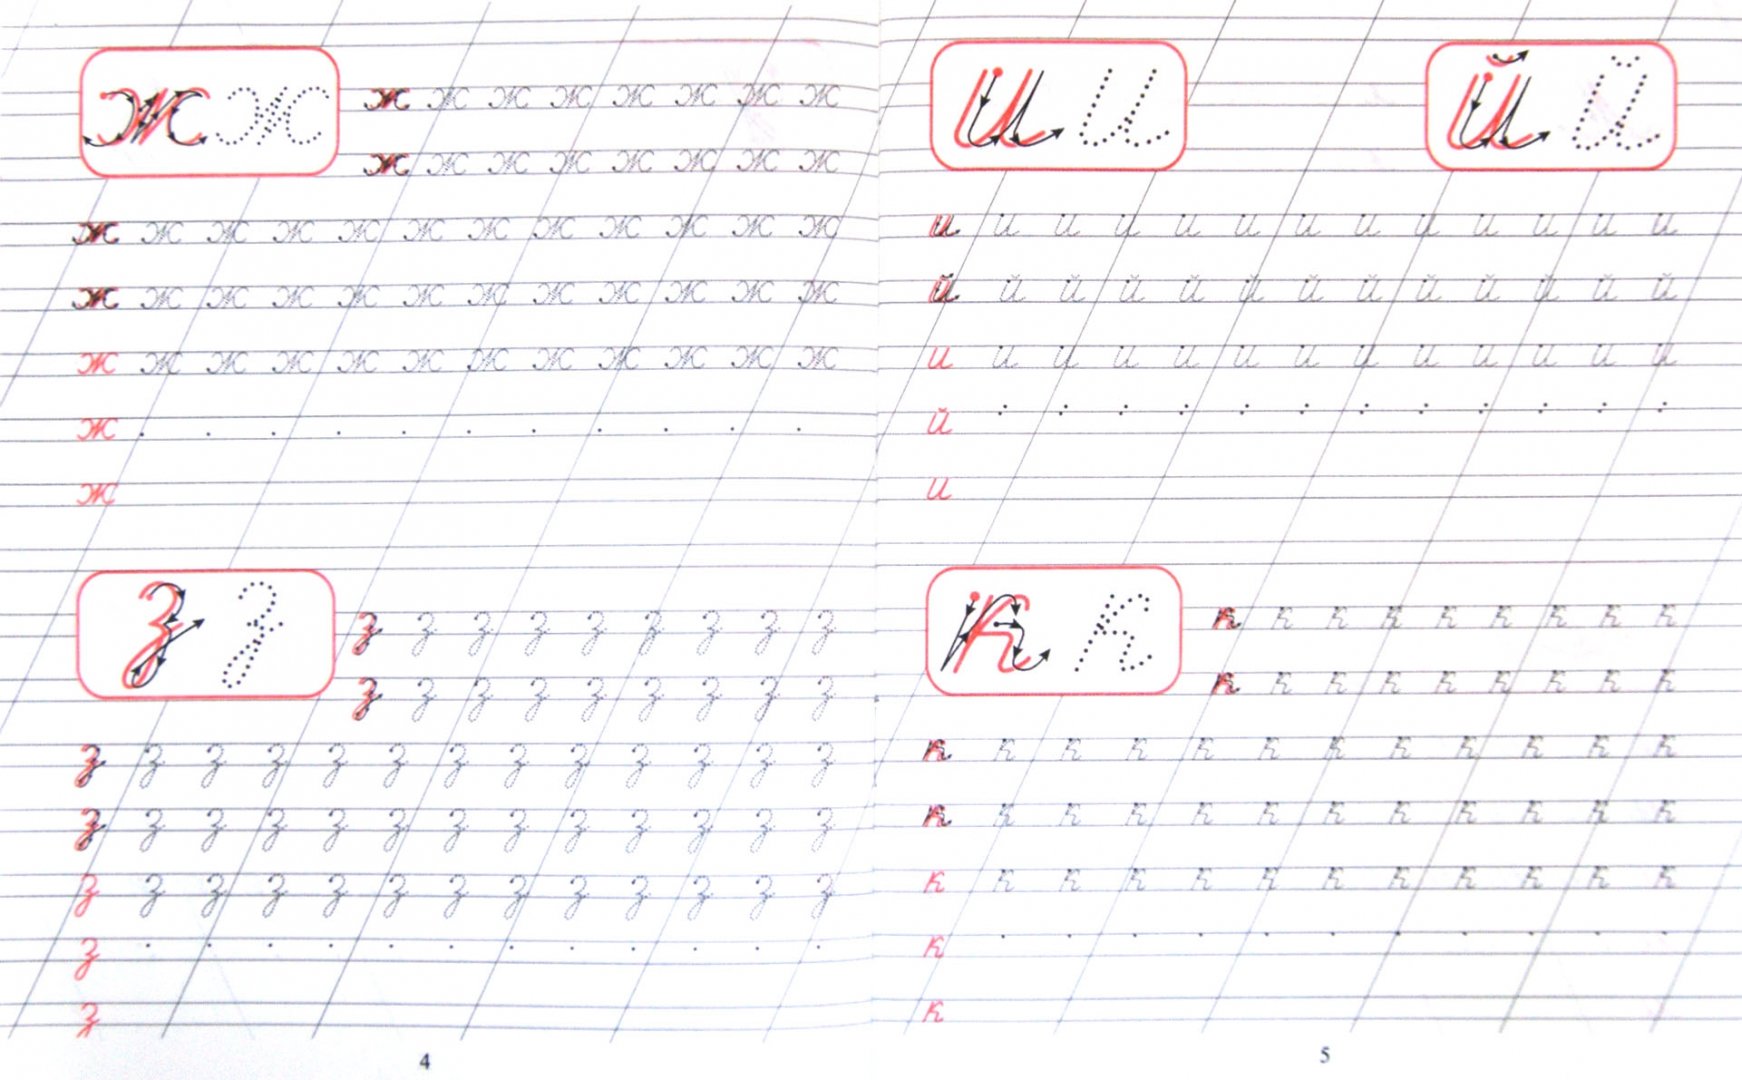 ж ж
ж ж ж ж ж ж ж ж
ж ж ж ж ж ж ж ж
ж ж ж ж ж ж ж ж ж ж ж ж
ж ж ж ж ж ж ж ж ж ж ж ж
ж ж ж ж ж ж ж ж ж ж ж ж
ж
ж
з з
з з з з з з з з з
з з з з з з з з з
з з з з з з з з з з з з з
з з з з з з з з з з з з з
з з з з з з з з з з з з з
з
з
4
и и й й
и и и и и и и и и и и и и
й й й й й й й й й й й й й й
и и и и и и и и и и и и и
й
и
к к
к к к к к к к к к
к к к к к к к к к
к к к к к к к к к к к к
к к к к к к к к к к к к
к к к к к к к к к к к к
к
к
5